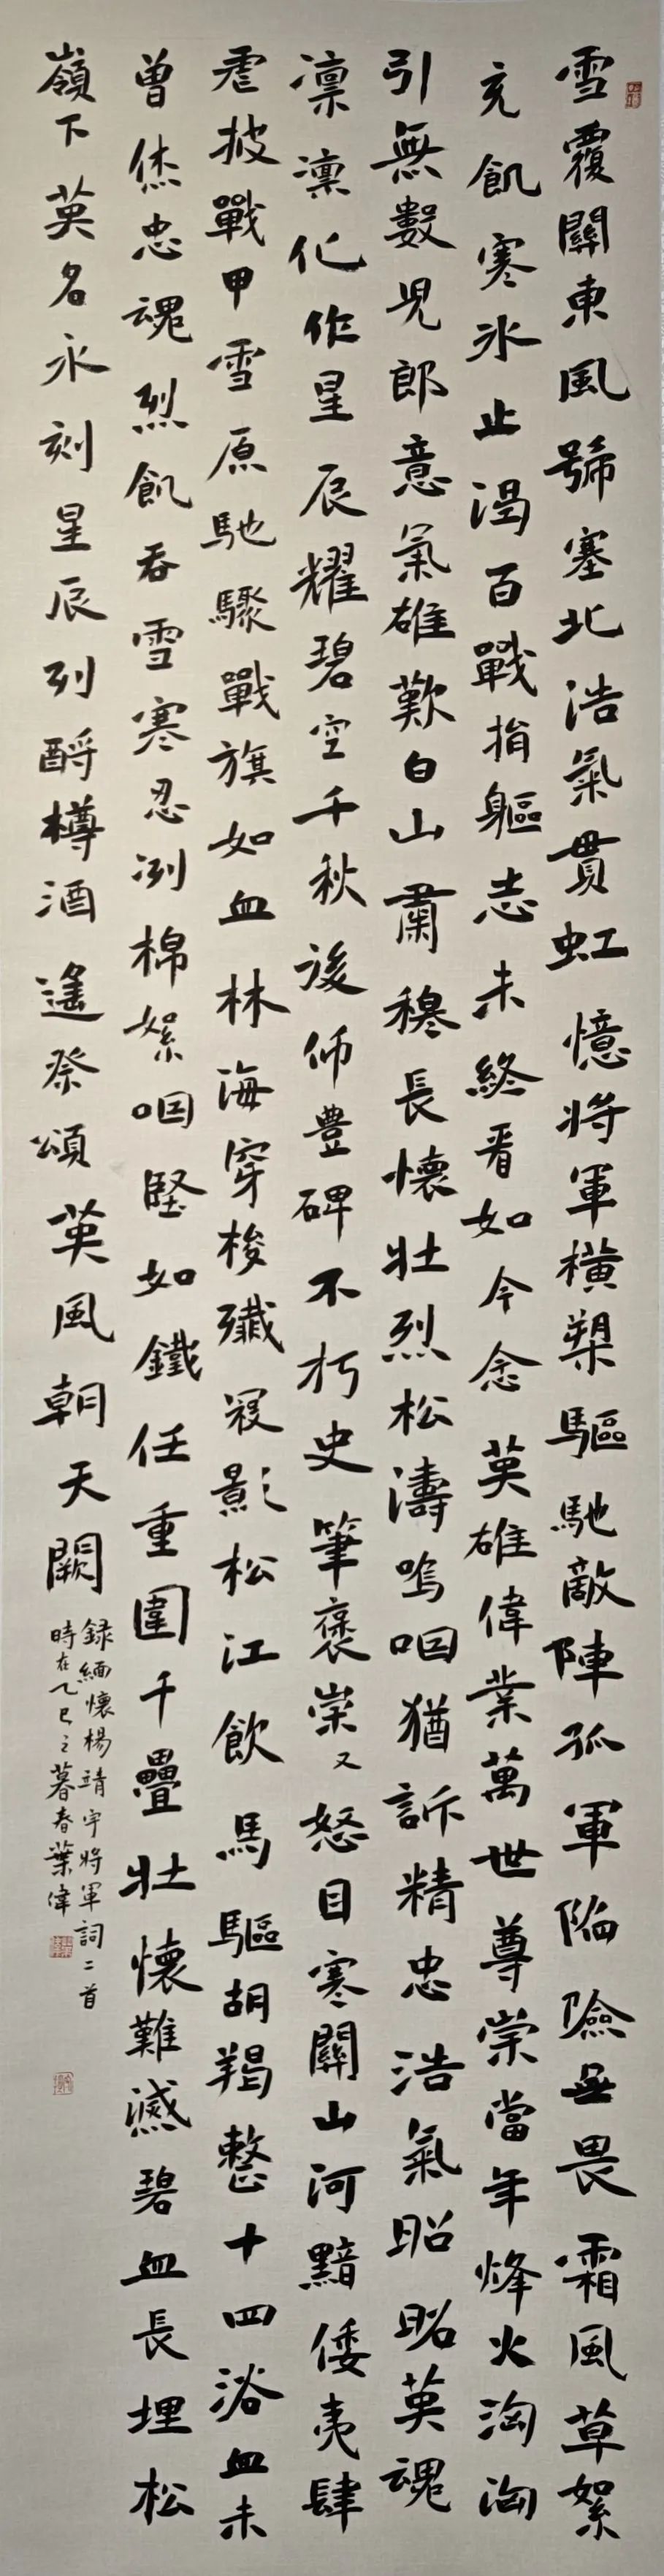 雪覆關東風號塞北浩氣貫虹憶將軍橫槊驅馳敵陣孤軍陷險無畏霜風草絮
充飢寒冰止渴百戰捐軀志未終看如今念英雄偉業萬世尊崇當年烽火洶洶
引無數児郎意氣雄歎白山肅穆長懷壯烈松濤嗚咽猶訴精忠浩氣昭昭英魂
凛凛化作星辰耀碧空千秋後仰豊碑不朽史筆褒崇又怒目寒關山河黯倭夷肆
虐披戰甲雪原馳驟戰旗如血林海穿梭殲寇影松江飲馬驅胡羯整十四浴血未
曾休忠魂烈飢吞雪寒忍冽棉絮咽堅如鐵任重圍千疊壯懷難滅碧血長埋松
嶺下英名永刻星辰列酹樽酒遙祭頌英風朝天闕
録緬懷楊靖宇將軍詞二首
時在乙巳之暮春葉偉